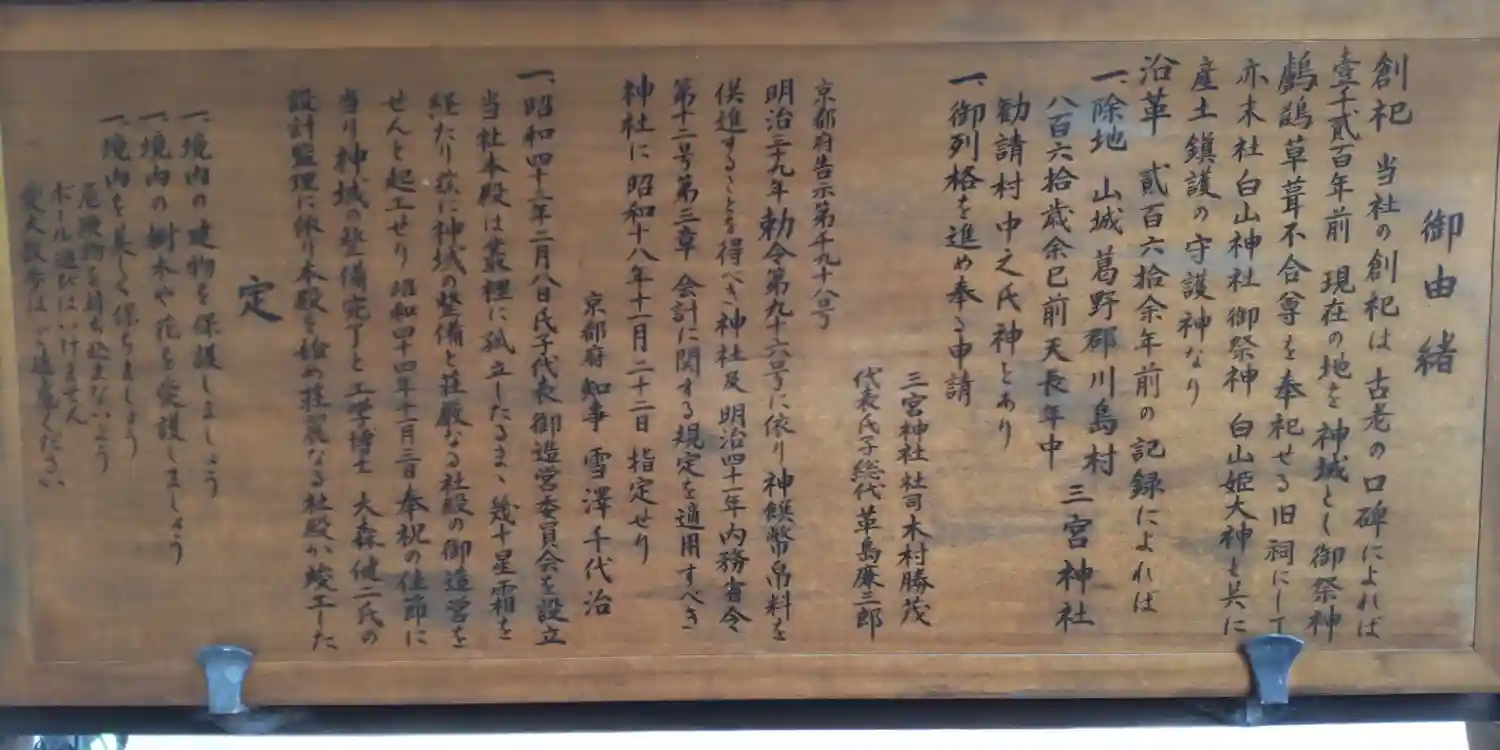 御由緒
創祀 当社の創祀は古老の口碑によれば
壹千貳百年前 現在の地を神域とし御祭神
鸕鷀草葺不合尊を奉祀せる旧祠にして
亦末社白山神社 御祭神 白山姫大神と共に
産土鎮護の守護神なり
沿革 貳百六拾余年前の記録によれば
一、除地 山城葛野郡川島村 三宮神社
八百六拾歳余已前天長年中
勧請村中之氏神とあり
一、御列格を進め奉る申請
三宮神社 社司 木村勝茂
代表氏子総代 革島廉三郎
京都府告示第千九十八号
明治三九年勅令第九十六号に依り神饌幣帛料を
供進することを得べき神社及明治四十一年内務省令
第十二号第三章 会計に関する規定を適用すべき
神社に昭和十八年十一月二十二日指定せり
京都府知事 雪澤千代治
一、昭和四十三年二月八日氏子代表御造営委員会を設立
当社本殿は叢裡に孤立したるまゝ幾十星霜を
経たり茲に神域の整備と荘厳なる社殿の御造営を
せんと起工せり 昭和四十四年十一月三日奉祝の佳節に
当り神域の整備完了と工学博士 大森健二氏の
設計監理に依り本殿を始め荘麗なる社殿が竣工した
定
一、境内の建物を保護しましょう
一、境内の樹木や花を愛護しましょう
一、境内を美しく保ちましょう
危険物を持ち込まないよう
ボール遊びはいけません
愛犬散歩はご遠慮ください